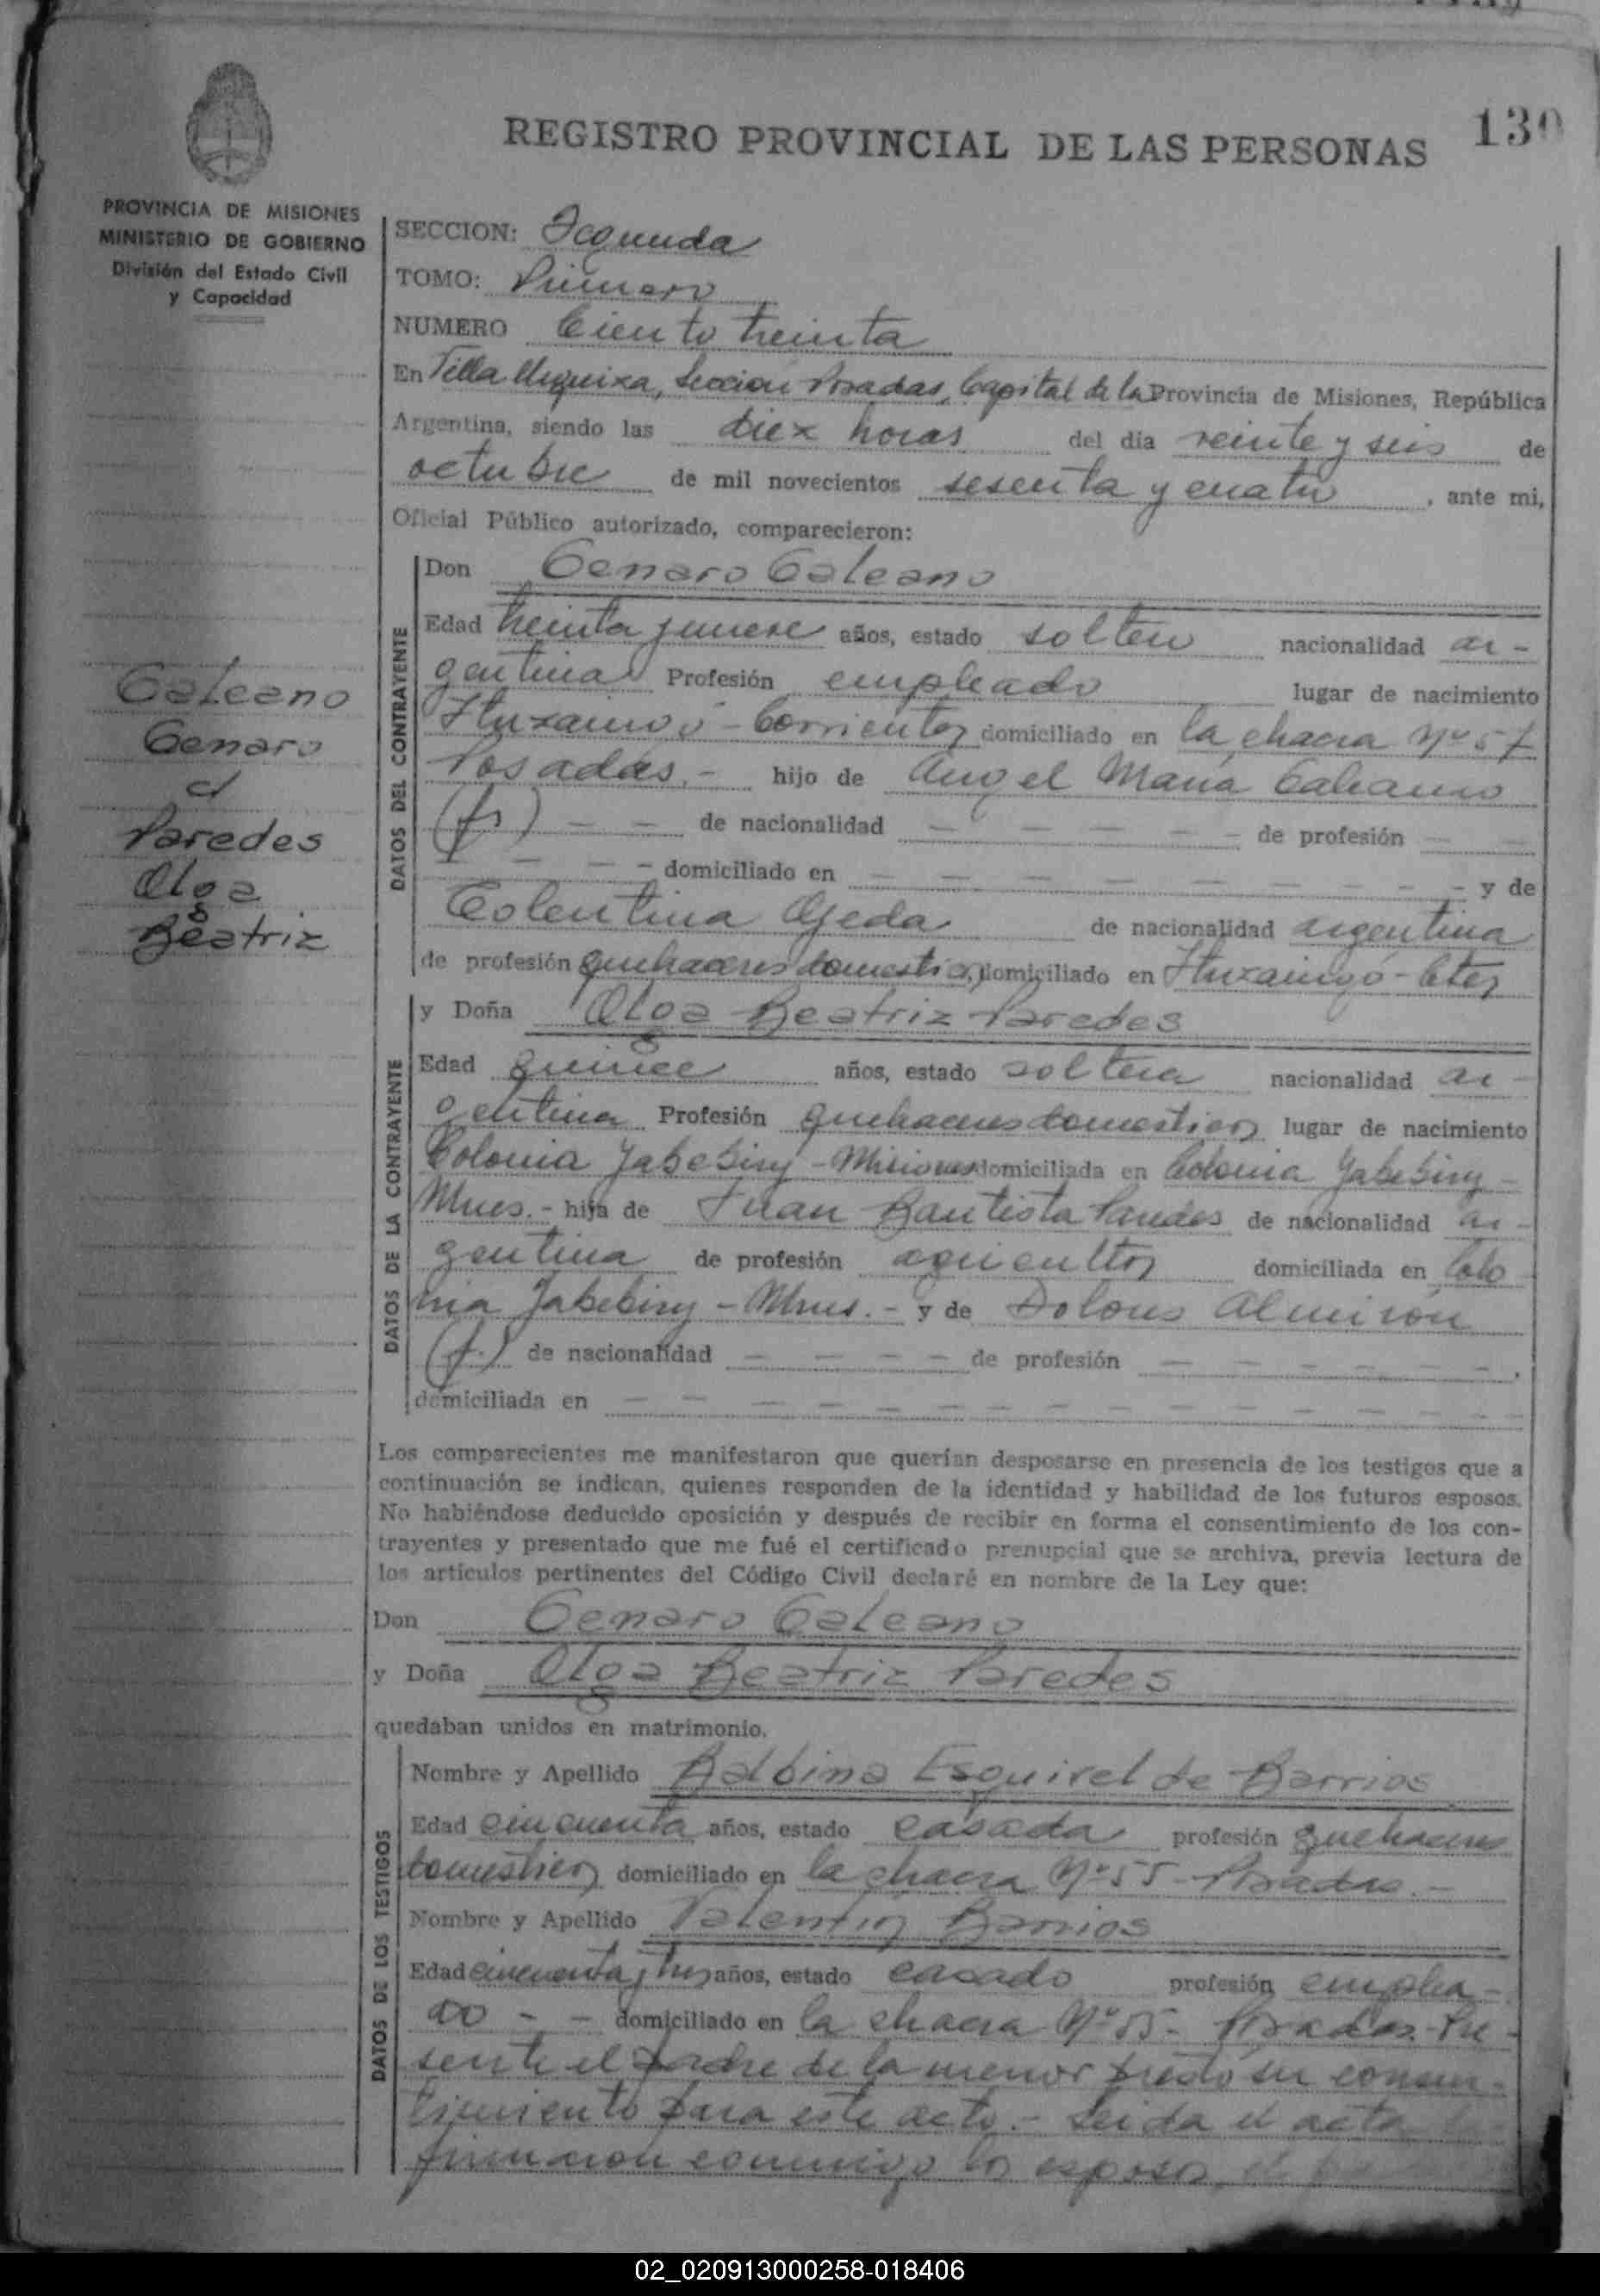 130
REGISTRO PROVINCIAL DE LAS PERSONAS
PROVINCIA DE MISIONES
MINISTERIO DE GOBIERNO
División del Estado Civil
y Capacidad
SECCION: Segunda
TOMO: Primero
NUMERO Ciento treinta
En Villa Urquiza, Sección Posadas, Capital de la Provincia de Misiones, República
Argentina, siendo las diez horas del día veinte y seis de
octubre de mil novecientos sesenta y cuatro, ante mi,
Oficial Público autorizado, comparecieron:
Galeano
Genaro
c/
Paredes
Olga
Beatriz
DATOS DEL CONTRAYENTE
Don Genaro Galeano
Edad treinta y nueve años, estado soltero nacionalidad ar-
gentina Profesión empleado lugar de nacimiento
Ituzaingó - Corrientes domiciliado en la chacra Nº 57
Posadas.- hijo de Angel María Galeano
(f) - - de nacionalidad - - - - - de profesión - -
- - - - domiciliado en - - - - - - - - - y de
Colentina Ojeda de nacionalidad argentina
de profesión quehaceres domesticos, domiciliado en Ituzaingó - Ctes
DATOS DE LA CONTRAYENTE
y Doña Olga Beatriz Paredes
Edad quince años, estado soltera nacionalidad ar-
gentina Profesión quehaceres domesticos lugar de nacimiento
Colonia Yabebiry - Misiones domiciliada en Colonia Yabebiry -
Mnes. - hija de Juan Bautista Paredes de nacionalidad ar-
gentina de profesión agricultor domiciliada en Colo
nia Yabebiry - Mnes. - y de Dolores Almirón
(f.) de nacionalidad - - - - de profesión - - - - - -,
domiciliada en - - - - - - - - - - - - -
Los comparecientes me manifestaron que querían desposarse en presencia de los testigos que a
continuación se indican, quienes responden de la identidad y habilidad de los futuros esposos.
No habiéndose deducido oposición y después de recibir en forma el consentimiento de los con-
trayentes y presentado que me fué el certificado prenupcial que se archiva, previa lectura de
los artículos pertinentes del Código Civil declaré en nombre de la Ley que:
Don Genaro Galeano
y Doña Olga Beatriz Paredes
quedaban unidos en matrimonio.
DATOS DE LOS TESTIGOS
Nombre y Apellido Balbina Esquivel de Barrios
Edad cincuenta años, estado casada profesión quehaceres
domesticos domiciliado en la chacra Nº 55 - Posadas. -
Nombre y Apellido Valentin Barrios
Edad cincuenta y tres años, estado casado profesión emplea-
do - - domiciliado en la chacra Nº 55 - Posadas.- Pre-
sente el padre de la menor prestó su consen-
timiento para este acto. - Leída el acta
firmaron conmigo los esposos, el
02_020913000258-018406